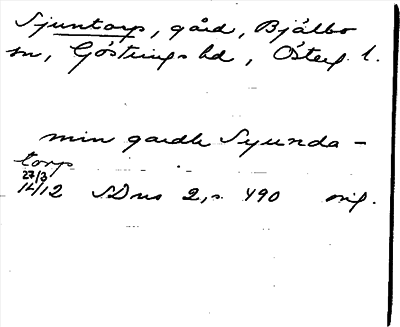 Sjuntorp, gård, Bjälbo
sn, Göstrings hd, Österg. l.
min gardh Syunda-
torp
27/3
1412 SDns 2, s. 490 orig.